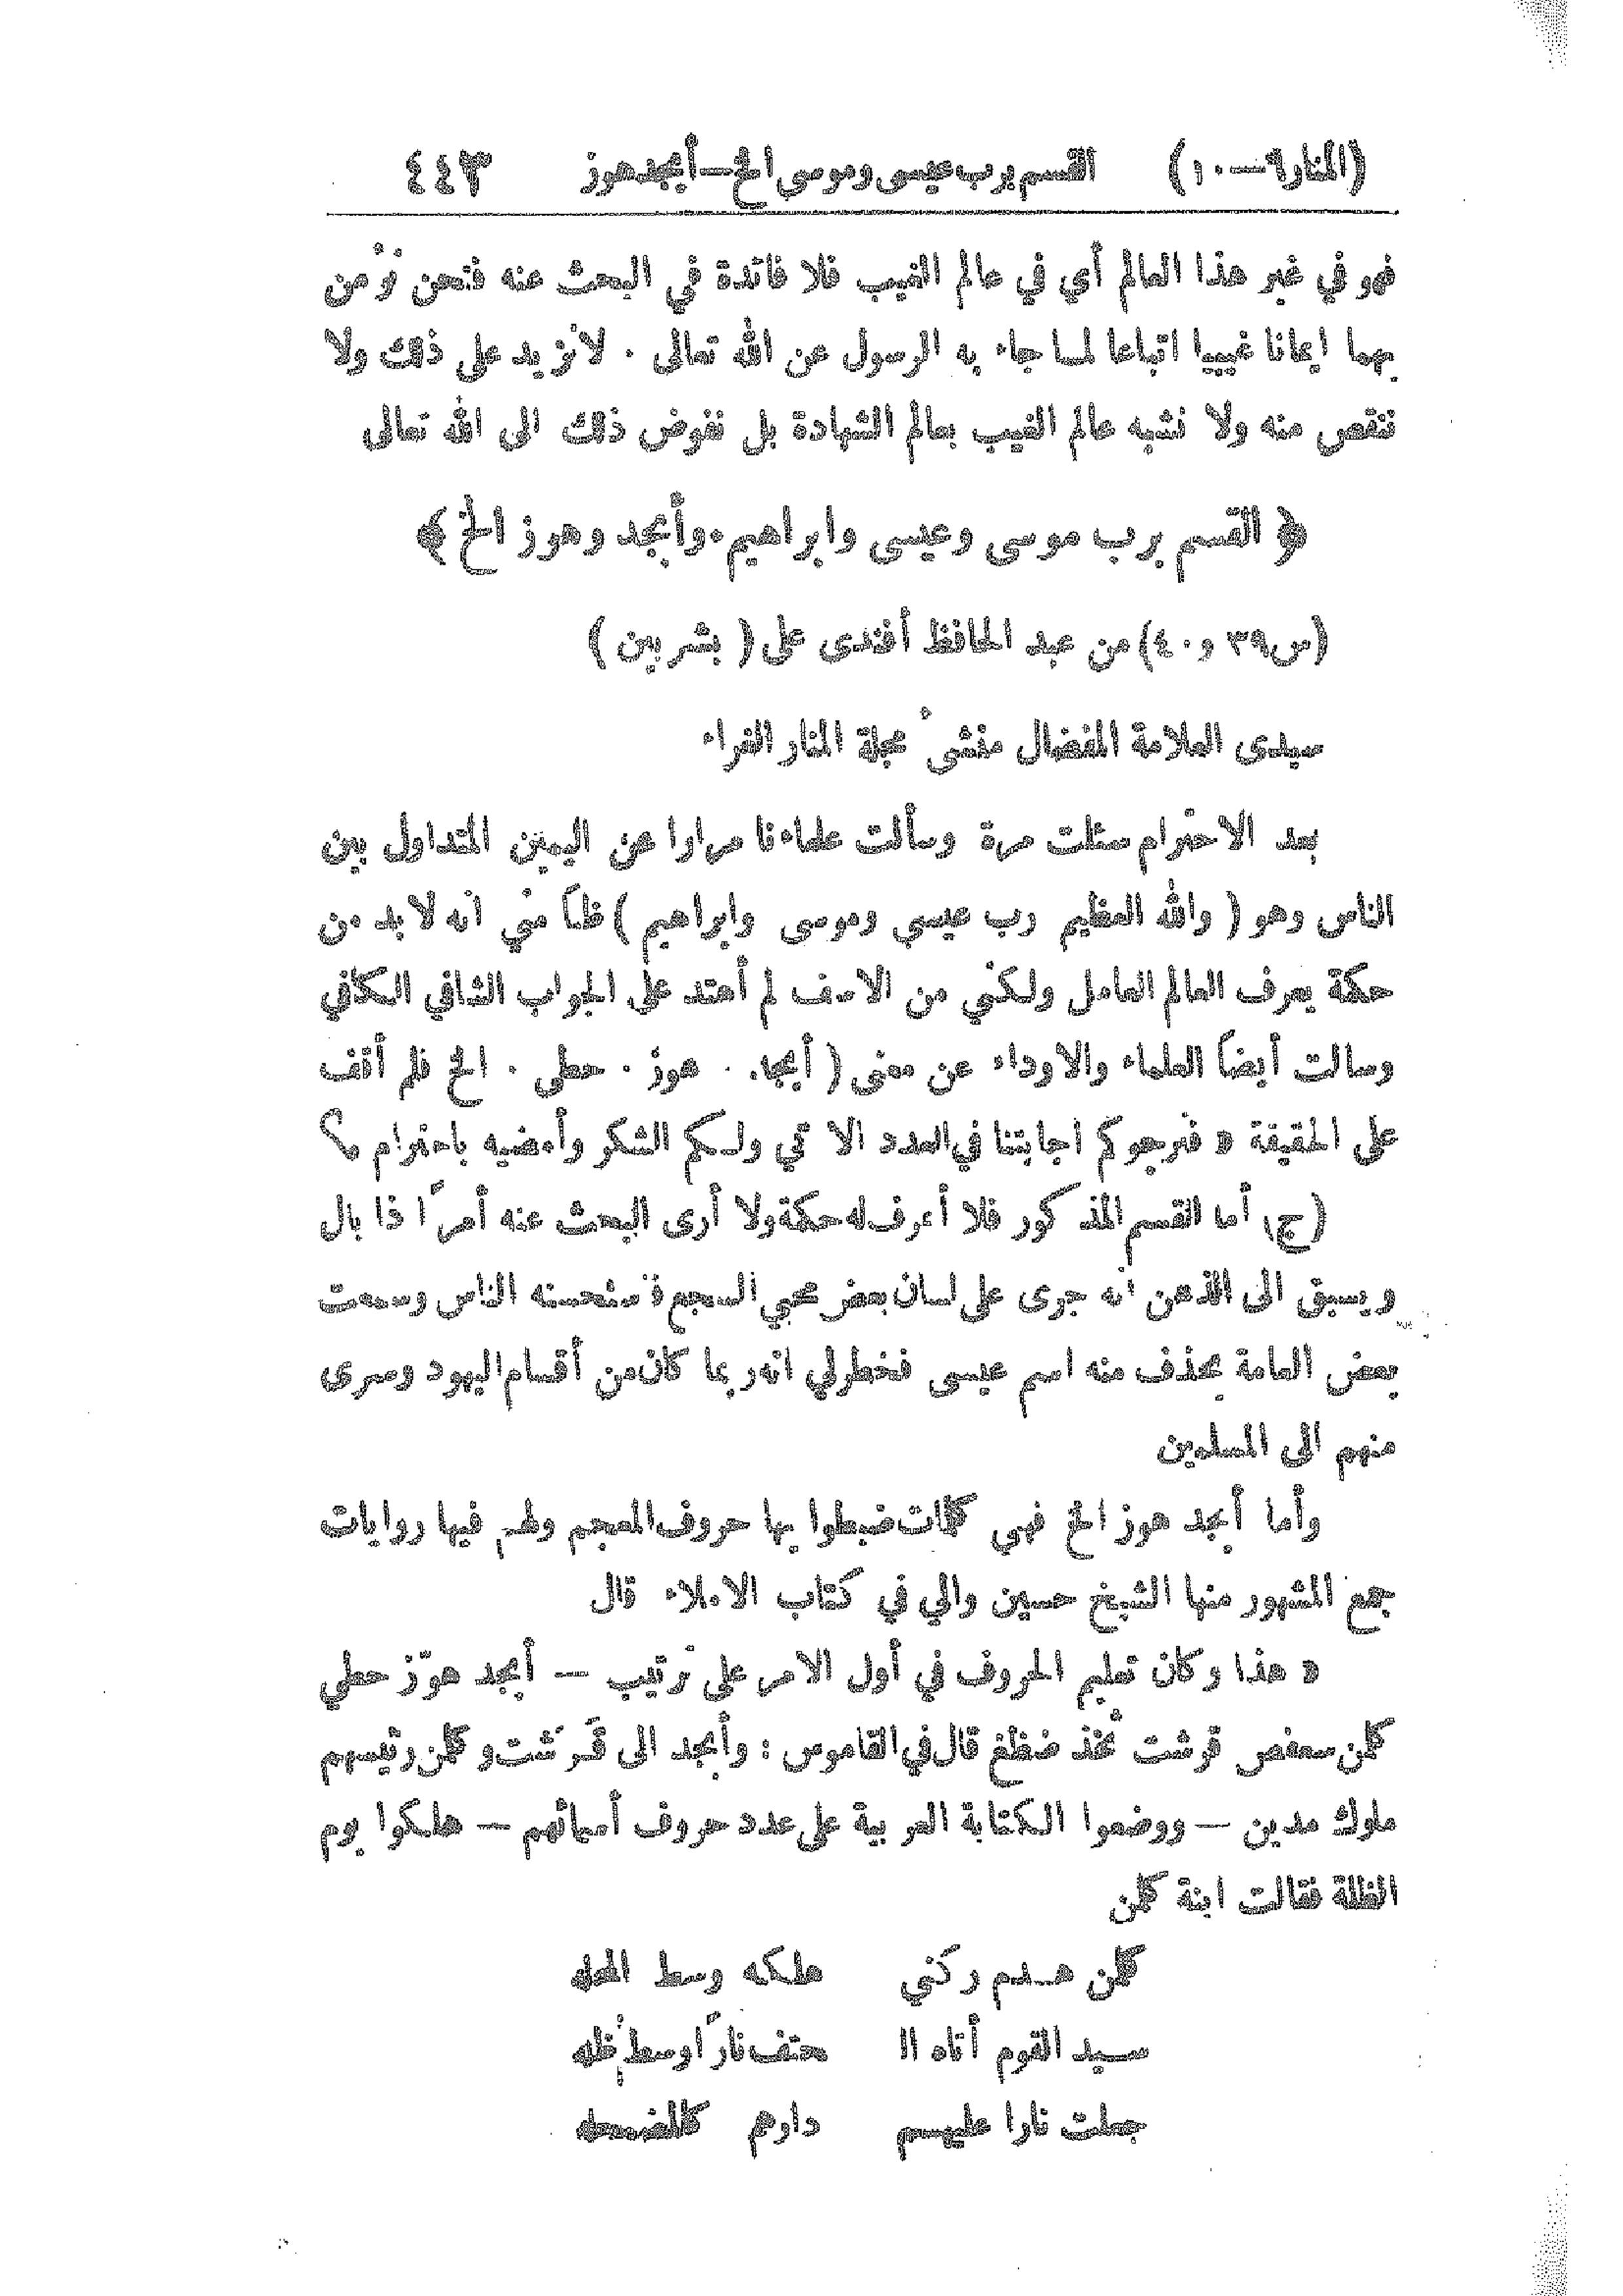 (المنار٦—١٠) القسم برب عيسى وموسى الخ—أبجد هوز ٤٤٣
فهو في غير هذا العالم أي في عالم الغيب فلا فائدة في البحث عنه فنحن نؤمن
بهما ايمانا غيبيا اتباعا لما جاء به الرسول عن الله تعالى . لا نزيد على ذلك ولا
ننقص منه ولا نشبه عالم الغيب بعالم الشهادة بل نفوض ذلك الى الله تعالى
﴿ القسم برب موسى وعيسى وابراهيم.وأبجد وهوز الخ ﴾
(س٣٩ و٤٠) من عبد الحافظ أفندى على ( بشربين )
سيدى العلامة المفضال منشىء مجلة المنار الغراء
بعد الاحترام سئلت مرة وسألت علماءنا مرارا عن اليمين المتداول بين
الناس وهو ( والله العظيم رب عيسي وموسى وابراهيم ) ظنًا مني انه لا بد من
حكمة يعرف العالم العامل ولكني من الاسف لم أهتد على الجواب الشافي الكافي
وسالت أيضاً العلماء والاوداء عن معنى ( أبجد . هوز . حطى . الخ فلم أقف
على الحقيقة « فنرجوكم اجابتنا في العدد الآتي ولكم الشكر وأمضيه باحترام م؟
(ج) أما القسم المذكور فلا أعرف له حكمة ولا أرى البحث عنه أمرًا ذا بال
ويسبق الى الذهن انه جرى على لسان بعض محبي السجع فاستحسنه الناس وسمعت
بعض العامة يحذف منه اسم عيسى فخطر لي انه ربما كان من أقسام اليهود وسرى
منهم الى المسلمين
وأما أبجد هوز الخ فهي كلمات ضبطوا بها حروف المعجم ولهم فيها روايات
جمع المشهور منها الشيخ حسين والي في كتاب الاملاء قال
« هذا وكان تعليم الحروف في أول الامر على ترتيب — أبجد هوّز حطي
كلمن سعفص قرشت ثخذ ضظغ قال في القاموس : وأبجد الى قَرَشت وكلمن رئيسهم
ملوك مدين — ووضعوا الكتابة العربية على عدد حروف أسمائهم — هلكوا يوم
الظلة فقالت ابنة كلمن
كلمن هدم ركني هلكه وسط المحله
سيد القوم أتاه ال حتف نارًا وسط ظله
جعلت نارا عليهم دارهم كالمضمحله